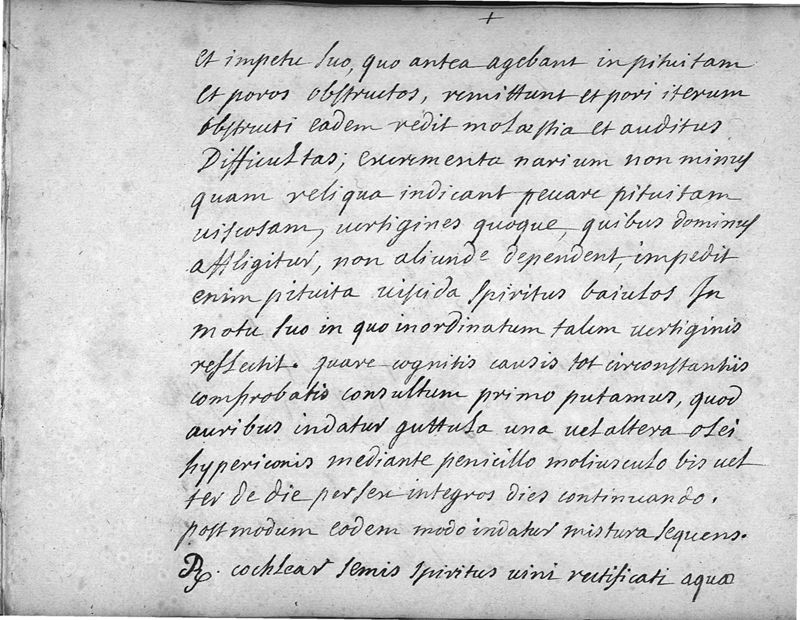 +
et impetu suo, quo antea agebant in pituitam
et poros obstructos, remittunt et pori iterum
obstructi eadem redit molæstia et auditus
Difficultas; excrementa narium non minus
quam reliqua indicant peccare pituitam
viscosam, vertigines quoque, quibus dominus
affligitur, non aliunde dependent, impedit
enim pituita viscida spiritus baiulos In
motu suo in quo inordinatum talem vertiginis
reflectit. quare cognitis causis tot circonstantiis
comprobatis consultum primo putamus, quod
auribus indatur guttula una vel altera olei
hypericonis mediante penicillo moliusculo bis vel
ter de die per sex integros dies continuando.
post modum eodem modo indatur mistura sequens.
℞. cochlear semis spiritus vini rectificati aquæ